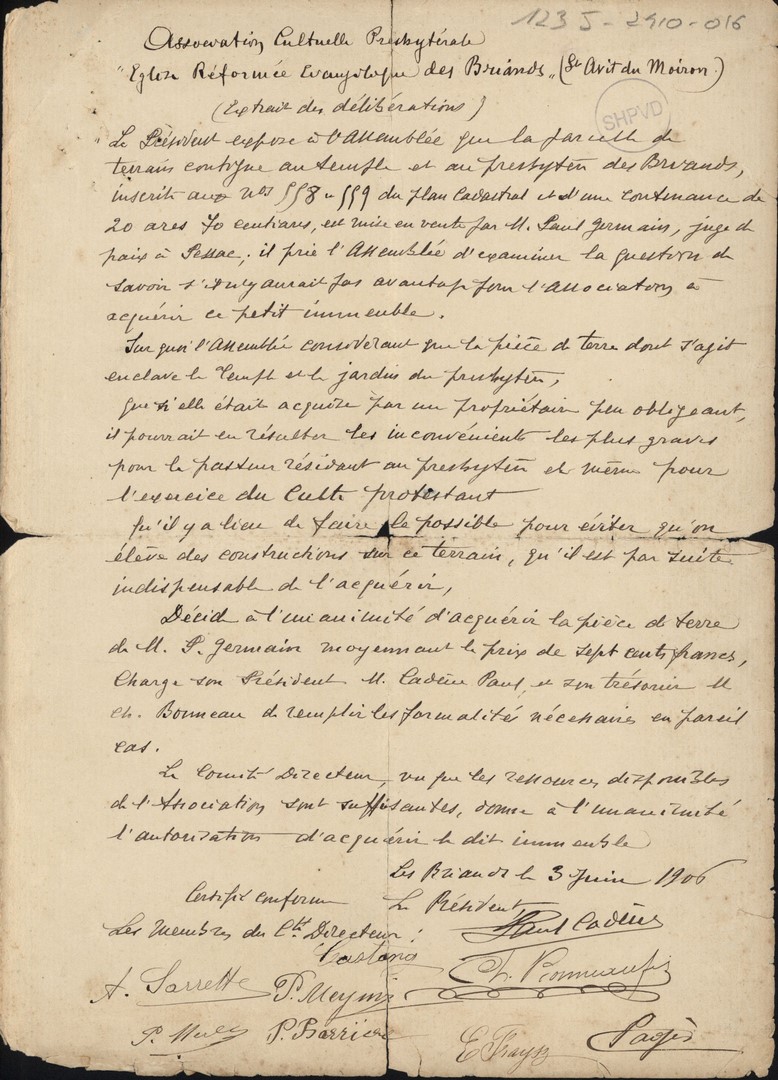 123 J - 2910 - 016
Association Cultuelle Presbytérale
"Eglise Réformée Evangélique des Briands" (St Avit du Moiron)
SHPVD
(Extrait des délibérations)
"Le Président expose à l'Assemblée que la parcelle de
terrain contigue au temple et au presbytère des Briands,
inscrite aux nos 558 et 559 du plan Cadastral et d'une contenance de
20 ares 70 centiares, est mise en vente par M. Paul Germain, juge de
paix à Pessac; il prie l'Assemblée d'examiner la question de
savoir s'il n'y aurait pas avantage pour l'Association à
acquérir ce petit immeuble.
Sur quoi l'Assemblée considérant que la pièce de terre dont s'agit
enclave le Temple et le jardin du presbytère,
que si elle était acquise par un propriétaire peu obligeant,
il pourrait en résulter les inconvénients les plus graves
pour le pasteur résidant au presbytère et même pour
l'exercice du Culte protestant
Qu'il y a lieu de faire le possible pour éviter qu'on
élève des constructions sur ce terrain, qu'il est par suite
indispensable de l'acquérir,
Décide à l'unanimité d'acquérir la pièce de terre
de M. P. Germain moyennant le prix de sept cents francs,
Charge son Président M. Cadène Paul, et son trésorier M
Ch. Bonneau de remplir les formalités nécessaires en pareil
cas.
Le Comité Directeur, vu que les ressources disponibles
de l'Association sont suffisantes, donne à l'unanimité
l'autorisation d'acquérir le dit immeuble
Les Briands le 3 Juin 1906
Certifié conforme
Le Président,
Les membres du Cté Directeur:
Paul Cadène
Castaing
Ch. Bonneau
A. Sarrette
P. Meynie
P. Barrière
Pagès